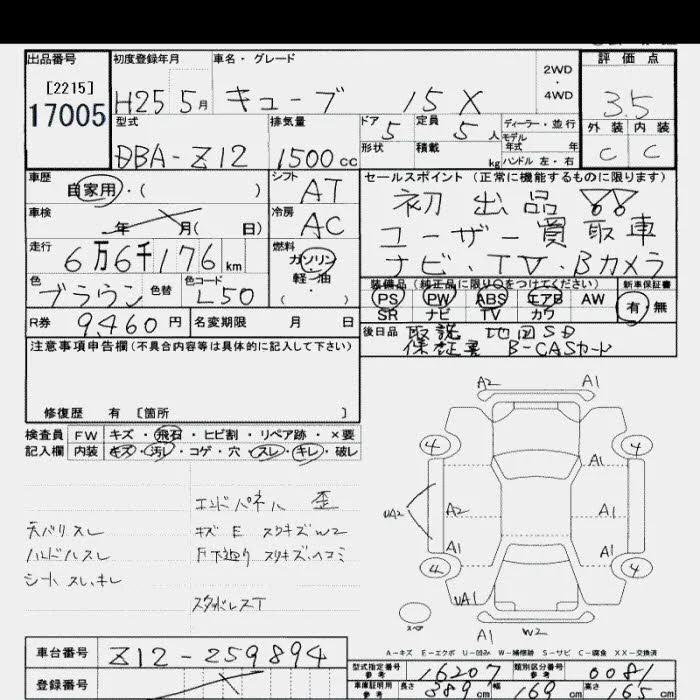 出品番号 初度登録年月 車名・グレード 2WD・4WD 評価点
[2215]
17005
H25 5月 キューブ 15X 3.5
型式 排気量 ドア 定員 ディーラー・並行 外装 内装
DBA-Z12 1500cc 5 5人 モデル年式 年 C C
形状 積載 kg ハンドル 左・右
車歴 シフト セールスポイント (正常に機能するものに限ります)
自家用・( ) AT 初出品
車検 冷房 ユーザー買取車
年 月( 日) AC ナビ・TV・Bカメラ
走行 燃料
6万6千176km ガソリン
軽・油
( )
色 色替 色コード
ブラウン L50
装備品(純正品に限り○をつけてください) 新車保証書
PS PW ABS エアB AW 有・無
SR ナビ TV カワ
R券 9,460円 名変期限 月 日
後日品 取説 地図SD
保証書 B-CASカード
注意事項申告欄(不具合内容等は具体的に記入して下さい)
修復歴 有 [箇所 ]
検査員 FW キズ・飛石・ヒビ割・リペア跡・×要
記入欄 内装 キズ・汚レ・コゲ・穴・スレ・キレ・破レ
エンドパネル 歪
天バリスレ キズE スリキズW2
ハンドルスレ 下廻り スリキズ・ヘコミ
シートスレ、キレ
スタッドレスT
A2 A1
4 4
A1
UA2 A2 A1
A1 A1
4 4
UA1
A1 W2
スペア
A-キズ E-エクボ U-凹み W-補修跡 S-サビ C-腐食 XX-交換済
車台番号 Z12-259894
型式指定番号 参考 16207 類別区分番号 参考 0081
登録番号
車庫証明用 参考 長さ 389cm 幅 169cm 高さ 65cm